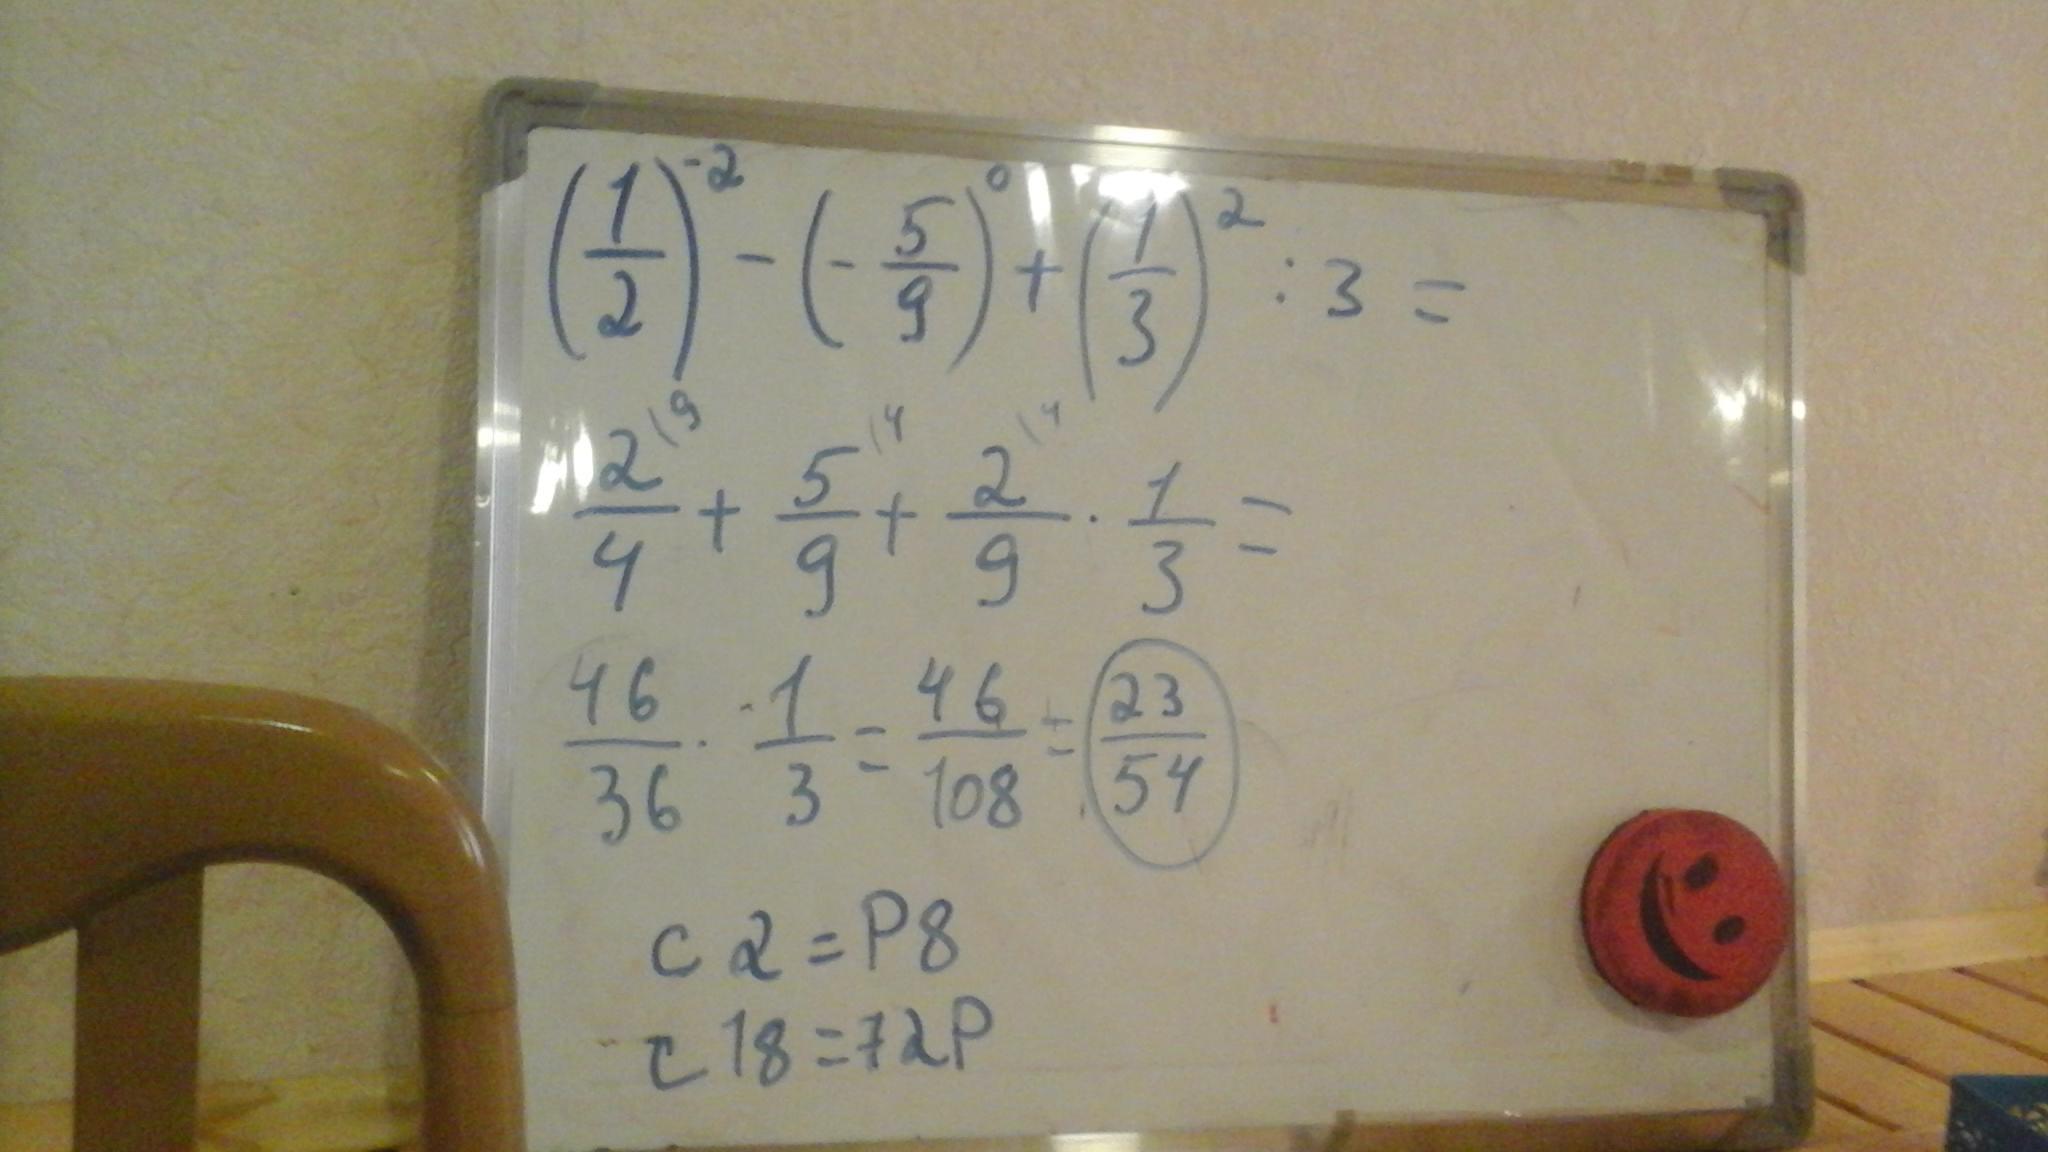 (1/2)^-2 - (-5/9)^0 + (1/3)^2 : 3 =
2\9/4 + 5\4/9 + 2\4/9 · 1/3 =
46/36 · 1/3 = 46/108 = 23/54
c 2 = P8
c 18 = 72P